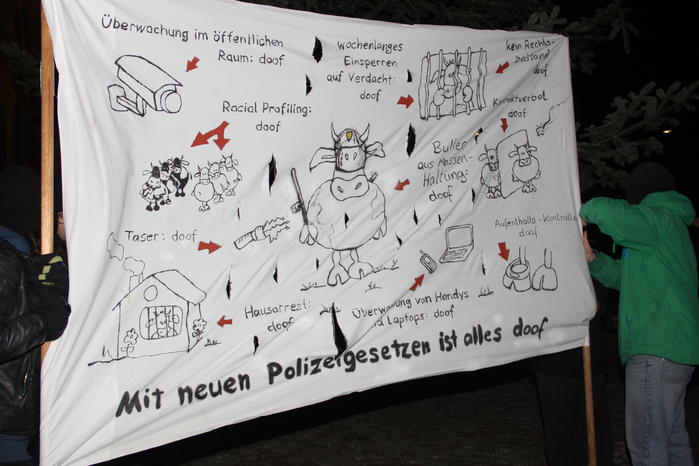 Überwachung im öffentlichen
Raum: doof
Wochenlanges
Einsperren
auf Verdacht:
doof
kein Rechts-
beistand
doof
Racial Profiling:
doof
Kontaktverbot
doof
Bullen
aus Massen-
Haltung:
doof
Taser: doof
Aufenthalts-Kontrolle
doof
Hausarrest:
doof
Überwachung von Handys
und Laptops: doof
Mit neuen Polizeigesetzen ist alles doof